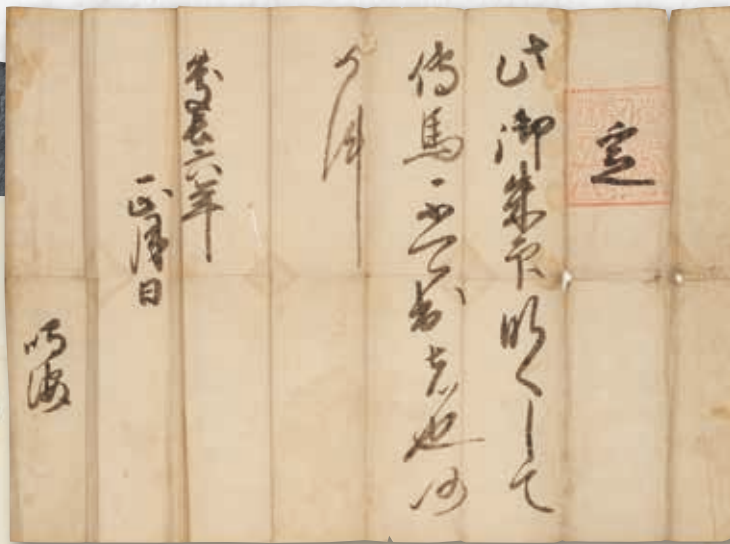 定
此御朱印なくして
傳馬不可出者也仍
如件
慶長六年
正月日
鳴海